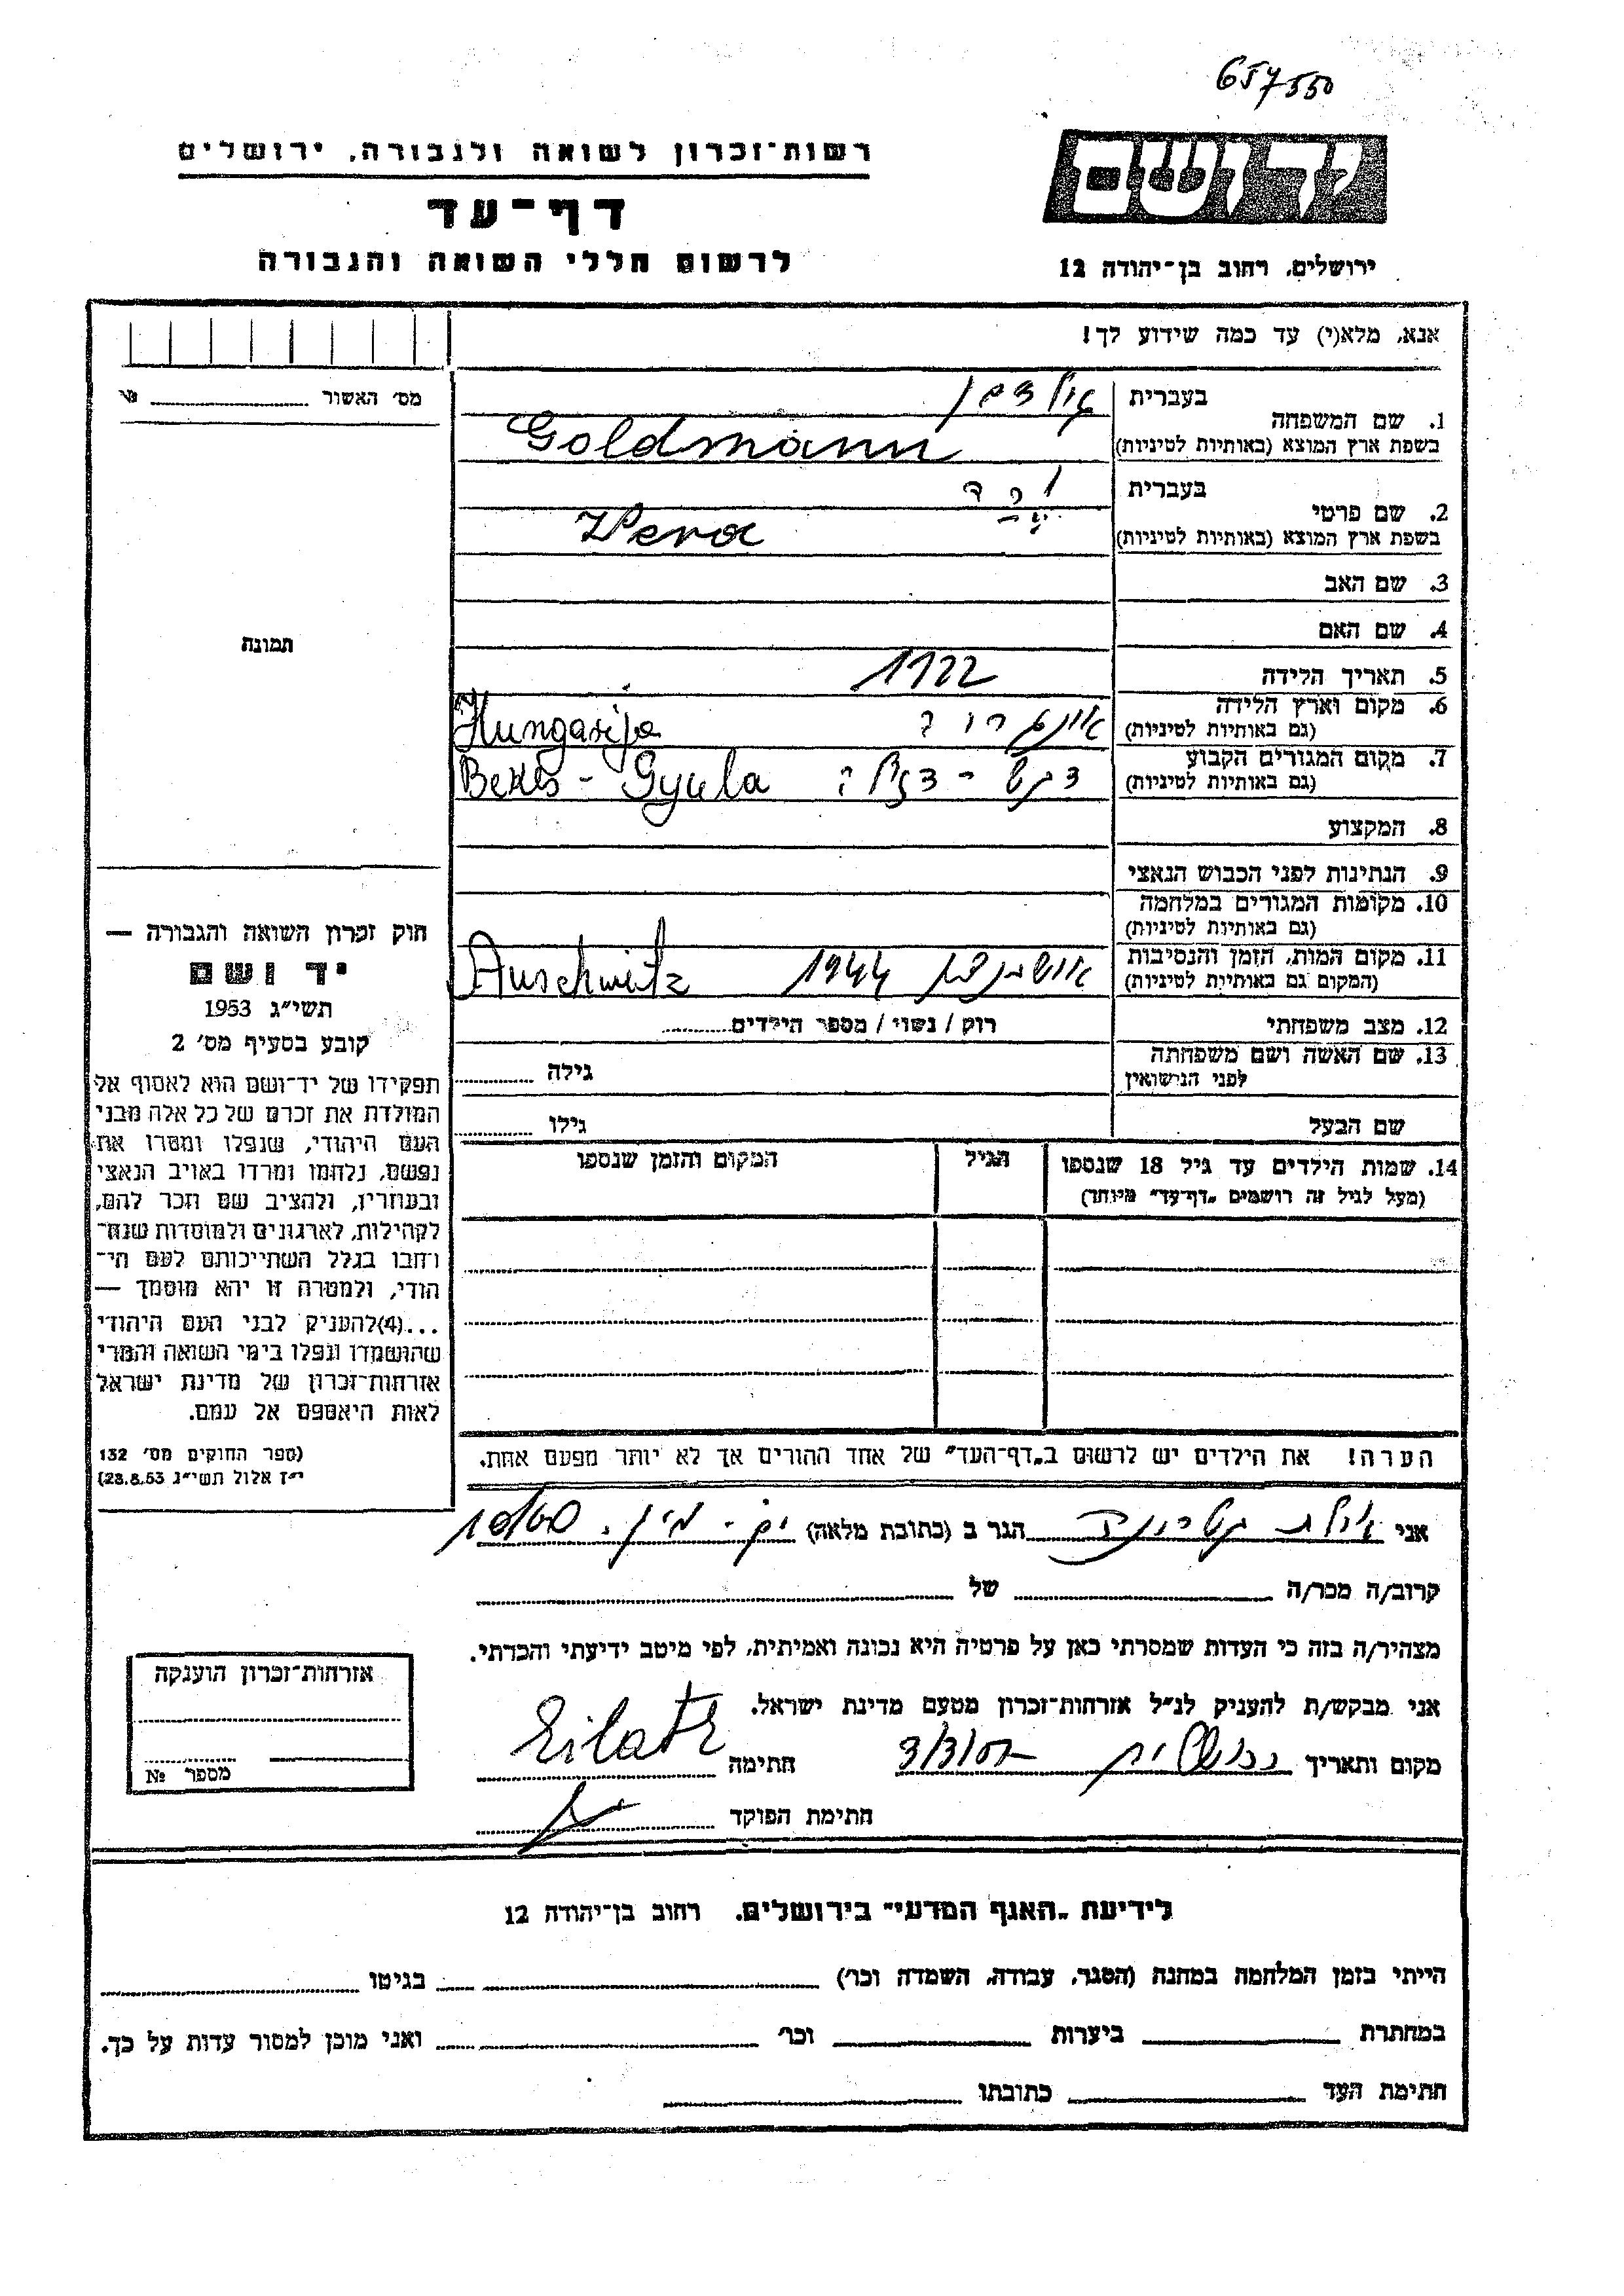 657550
רשות־זכרון לשואה ולגבורה, ירושלים
דף־עד
לרשום חללי השואה והגבורה
יד ושם
ירושלים, רחוב בן־יהודה 12
אנא, מלא(י) עד כמה שידוע לך!
מס׳ האשור № 
1. שם המשפחה
בעברית
בשפת ארץ המוצא (באותיות לטיניות)
Goldmann
2. שם פרטי
בעברית
בשפת ארץ המוצא (באותיות לטיניות)
Vera
3. שם האב
4. שם האם
5. תאריך הלידה 1922
6. מקום וארץ הלידה
(גם באותיות לטיניות)
Hungarija
7. מקום המגורים הקבוע
(גם באותיות לטיניות)
Bekes - Gyula
8. המקצוע
9. הנתינות לפני הכבוש הנאצי
10. מקומות המגורים במלחמה
(גם באותיות לטיניות)
11. מקום המות, הזמן והנסיבות
(המקום גם באותיות לטיניות)
1944 Auschwitz
12. מצב משפחתי רוק / נשוי / מספר הילדים
13. שם האשה ושם משפחתה
לפני הנישואין
גילה
שם הבעל גילו
14. שמות הילדים עד גיל 18 שנספו
(מעל לגיל זה רושמים „דף־עד״ מיוחד)
הגיל
המקום והזמן שנספו
הערה! את הילדים יש לרשום ב„דף־העד״ של אחד ההורים אך לא יותר מפעם אחת.
תמונה
חוק זכרון השואה והגבורה —
יד ושם
תשי״ג 1953
קובע בסעיף מס׳ 2
תפקידו של יד־ושם הוא לאסוף אל
המולדת את זכרם של כל אלה מבני
העם היהודי, שנפלו ומסרו את
נפשם, נלחמו ומרדו באויב הנאצי
ובעוזריו, ולהציב שם וזכר להם,
לקהילות, לארגונים ולמוסדות שנח־
רחבו בגלל השתייכותם לעם הי־
הודי, ולמטרה זו יהא מוסמך —
...(4)להעניק לבני העם היהודי
שהושמדו ונפלו בימי השואה והמרי
אזרחות־זכרון של מדינת ישראל
לאות היאספם אל עמם.
(ספר החוקים מס׳ 132
י״ז אלול תשי״ג 28.8.53)
אני אילת הגר ב (כתובת מלאה)
קרוב/ה מכר/ה של
מצהיר/ה בזה כי העדות שמסרתי כאן על פרטיה היא נכונה ואמיתית, לפי מיטב ידיעתי והכרתי.
אני מבקש/ת להעניק לנ״ל אזרחות־זכרון מטעם מדינת ישראל.
מקום ותאריך חתימה Eilath
חתימת הפוקד
אזרחות־זכרון הוענקה
מספר №
לידיעת „האגף המדעי״ בירושלים. רחוב בן־יהודה 12
הייתי בזמן המלחמה במחנה (הסגר, עבודה, השמדה וכו׳) בגיטו
במחתרת ביערות וכו׳ ואני מוכן למסור עדות על כך.
חתימת העד כתובתו